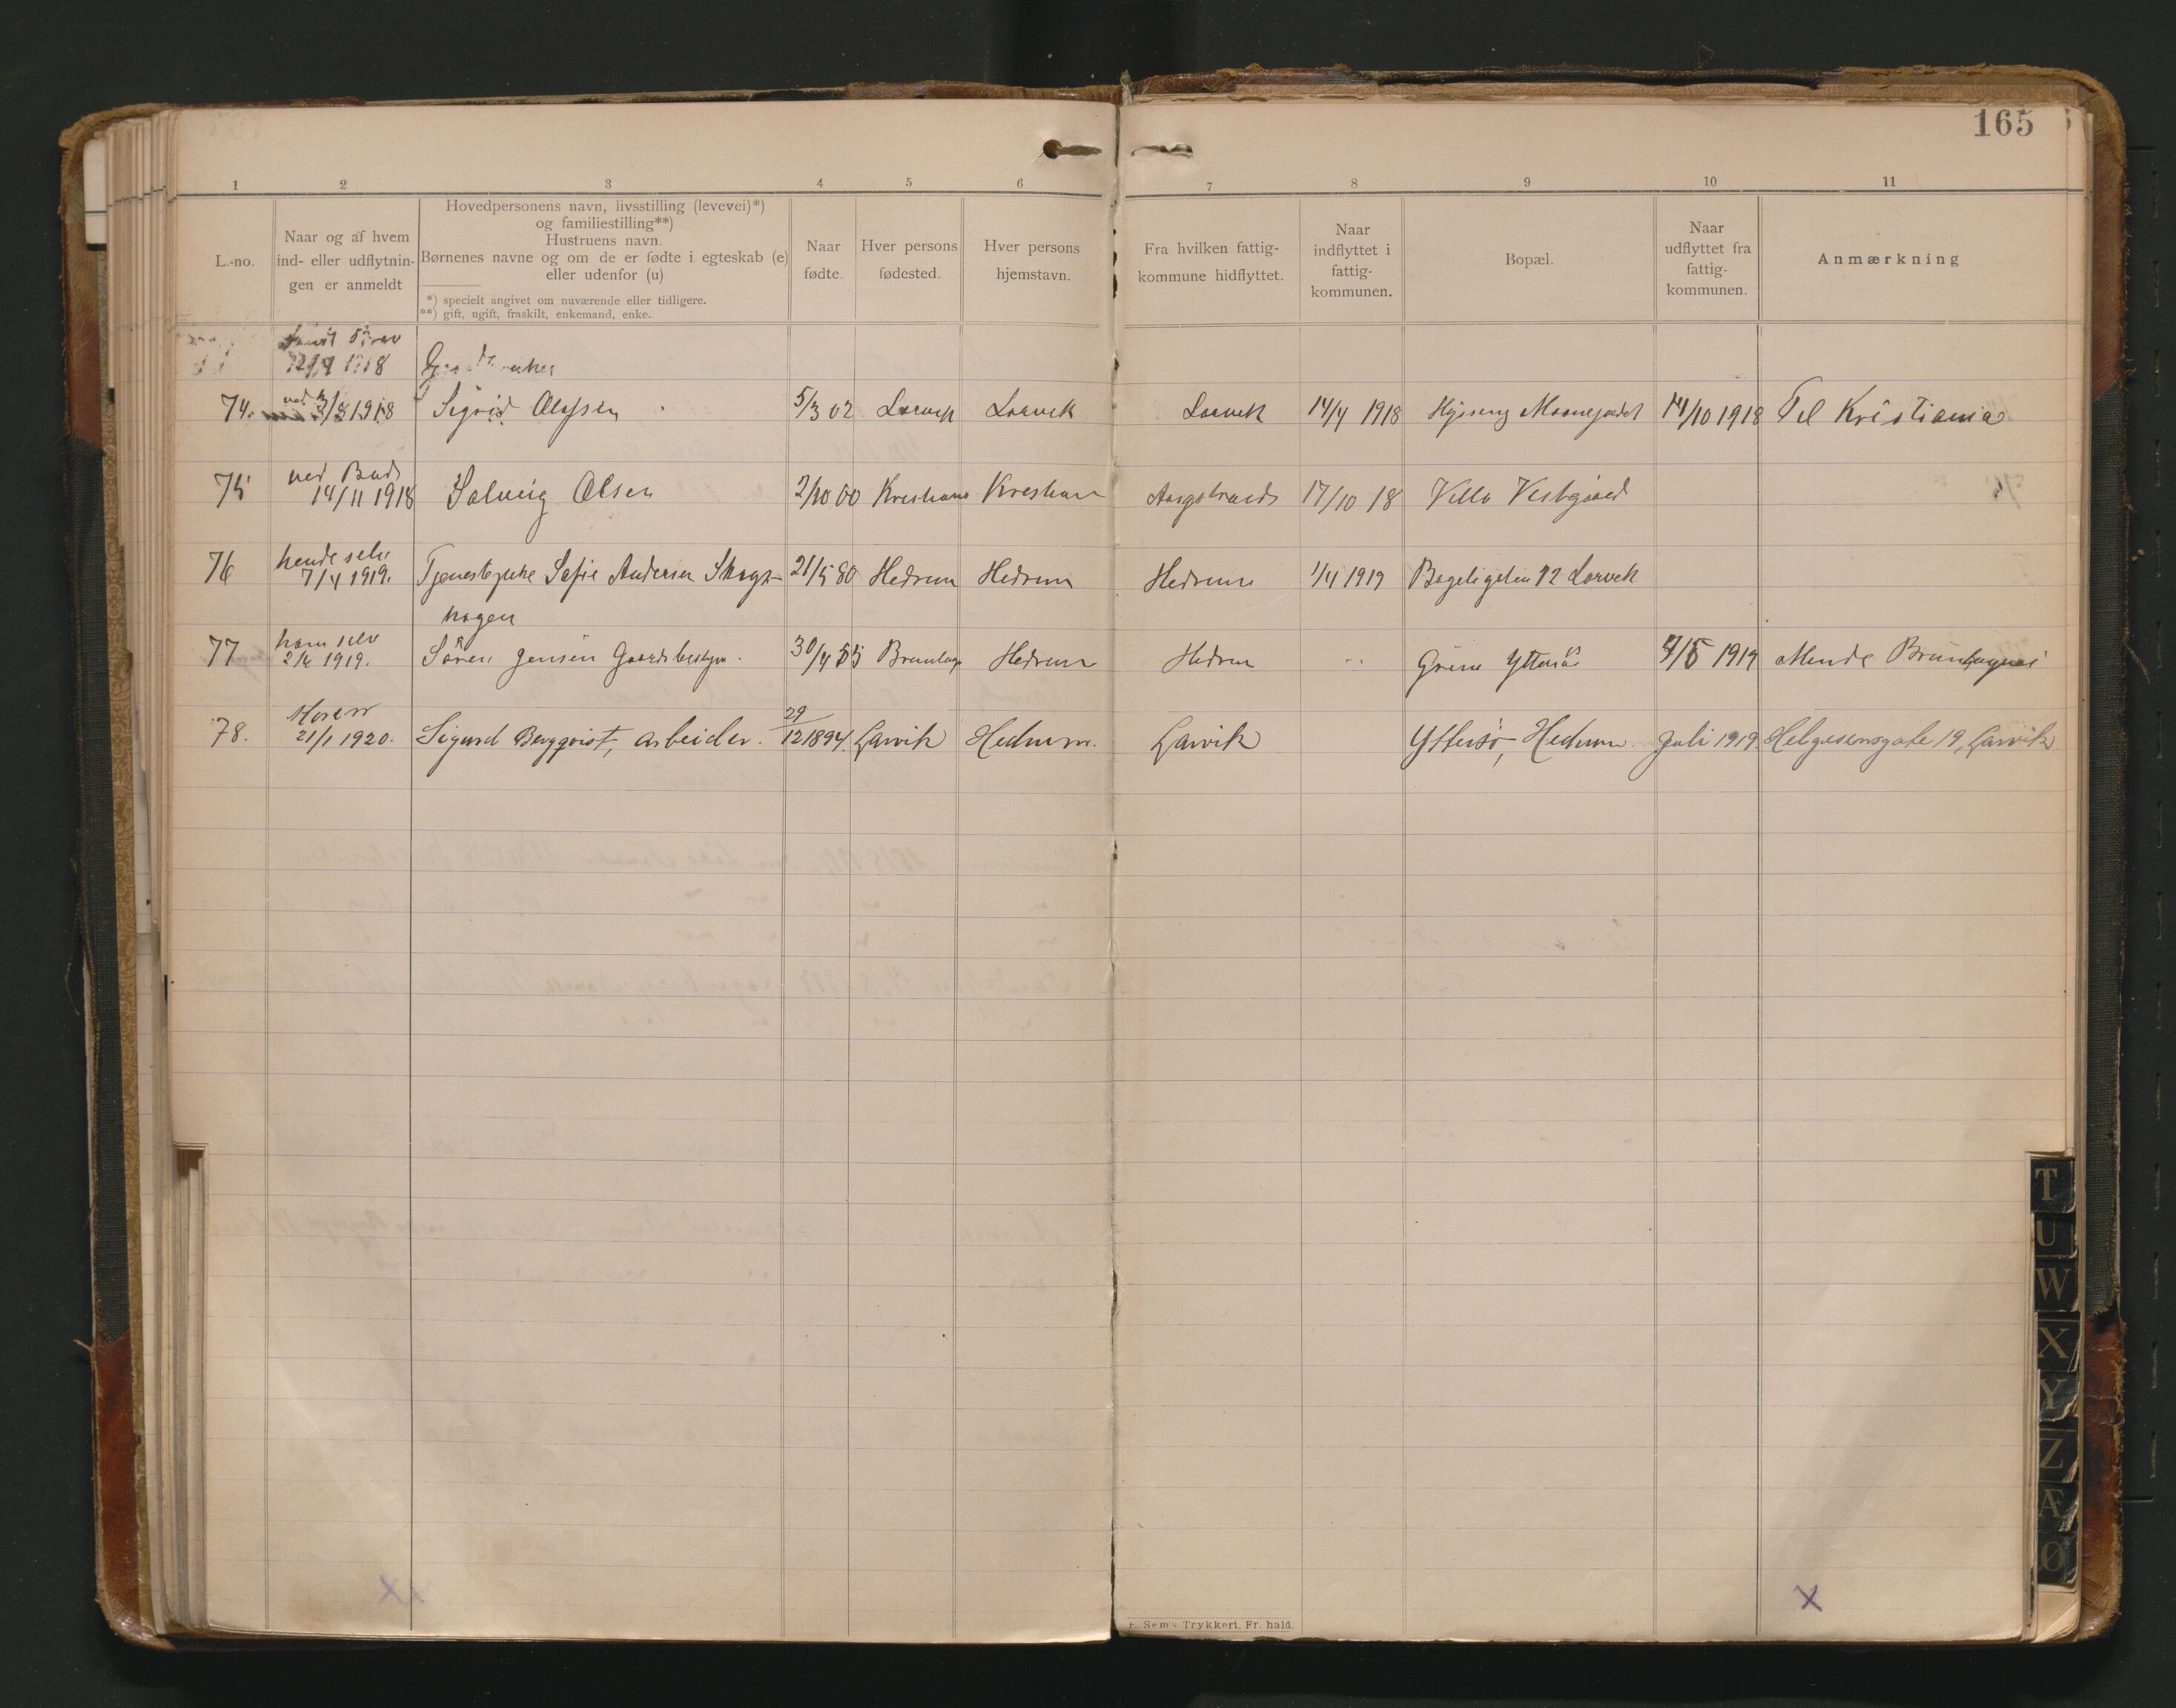 165
1 2 3 4 5 6 7 8 9 10 11
L.-no.
Naar og af hvem
ind- eller udflytnin-
gen er anmeldt
Hovedpersonens navn, livsstilling (levevei)*)
og familiestilling**)
Hustruens navn.
Børnenes navne og om de er fødte i egteskab (e)
eller udenfor (u)
*) specielt angivet om nuværende eller tidligere.
**) gift, ugift, fraskilt, enkemand, enke.
Naar
fødte.
Hver persons
fødested.
Hver persons
hjemstavn.
Fra hvilken fattig-
kommune hidflyttet.
Naar
indflyttet i
fattig-
kommunen.
Bopæl.
Naar
udflyttet fra
fattig-
kommunen.
Anmærkning
1918
74. 3/8 1918 Sigrid Olafsen 5/3 02 Larvik Larvik Larvik 14/4 1918 14/10 1918 Til Kristiania
ved Bud
75 14/11 1918 Solveig Olsen 2/10 00 Kristiania Kristiania Aasgstrand 17/10 18 Villa Vestgaard
hende selv
76 7/4 1919. Tjenestepike Sofie Andersen Skogs- 21/5 80 Hedrum Hedrum Hedrum 1/4 1919 Bøgeligaten 12 Larvik
hagen
ham selv
77 2/6 1919. Søren Jensen Gaardsbestyr. 30/4 85 Brunlanes Hedrum Hedrum Grene Yttersø 1919 Minde Brunlanes
78. 21/1 1920. Sigurd Bergqvist, arbeider. 29/12 1894. Larvik Hedrum. Larvik Yttersø, Hedrum Juli 1919 Helgesensgate 19, Larvik
T
U
W
X
Y
Z
Æ
Ø
X
X
E. Sems Trykkeri, Fr. hald.